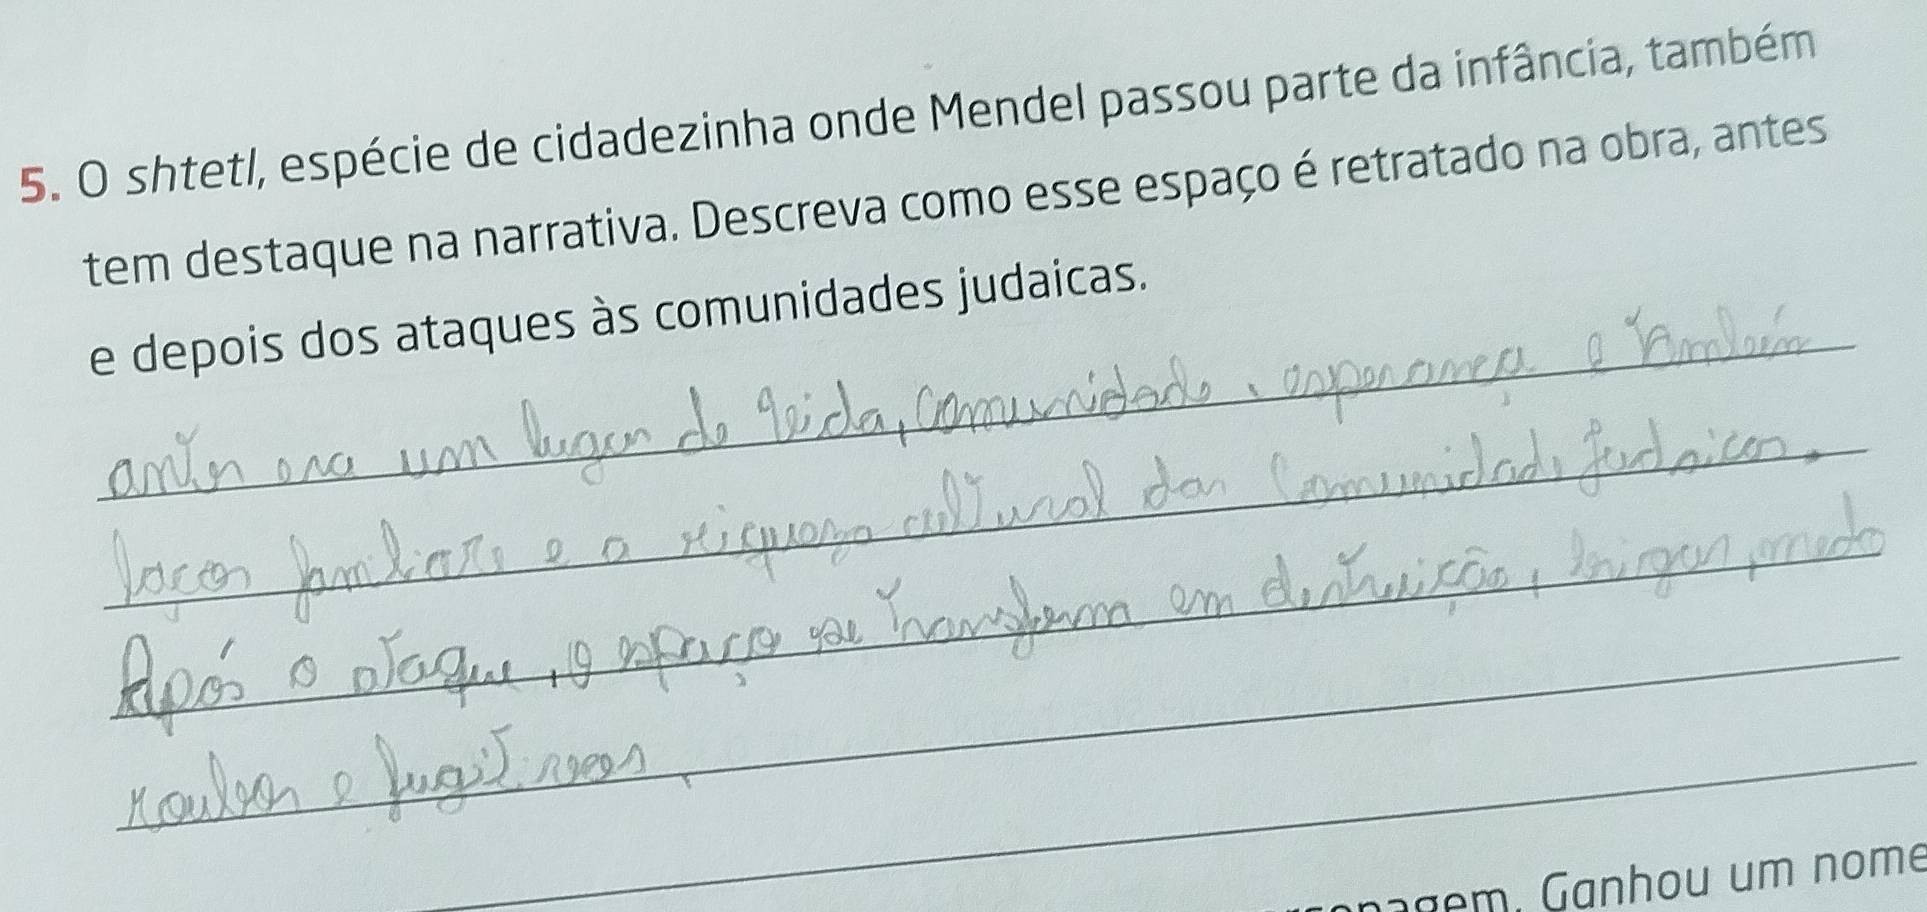 5. O shtetl, espécie de cidadezinha onde Mendel passou parte da infância, também
tem destaque na narrativa. Descreva como esse espaço é retratado na obra, antes
e depois dos ataques às comunidades judaicas.
antes era um lugar de vida, comunidade, esperança e também
laços familiares e a riqueza cultural das comunidade judaicas.
Após o ataque, o espaço se transforma em destruição, brigas, medo
roubos e
Ganhou um nome